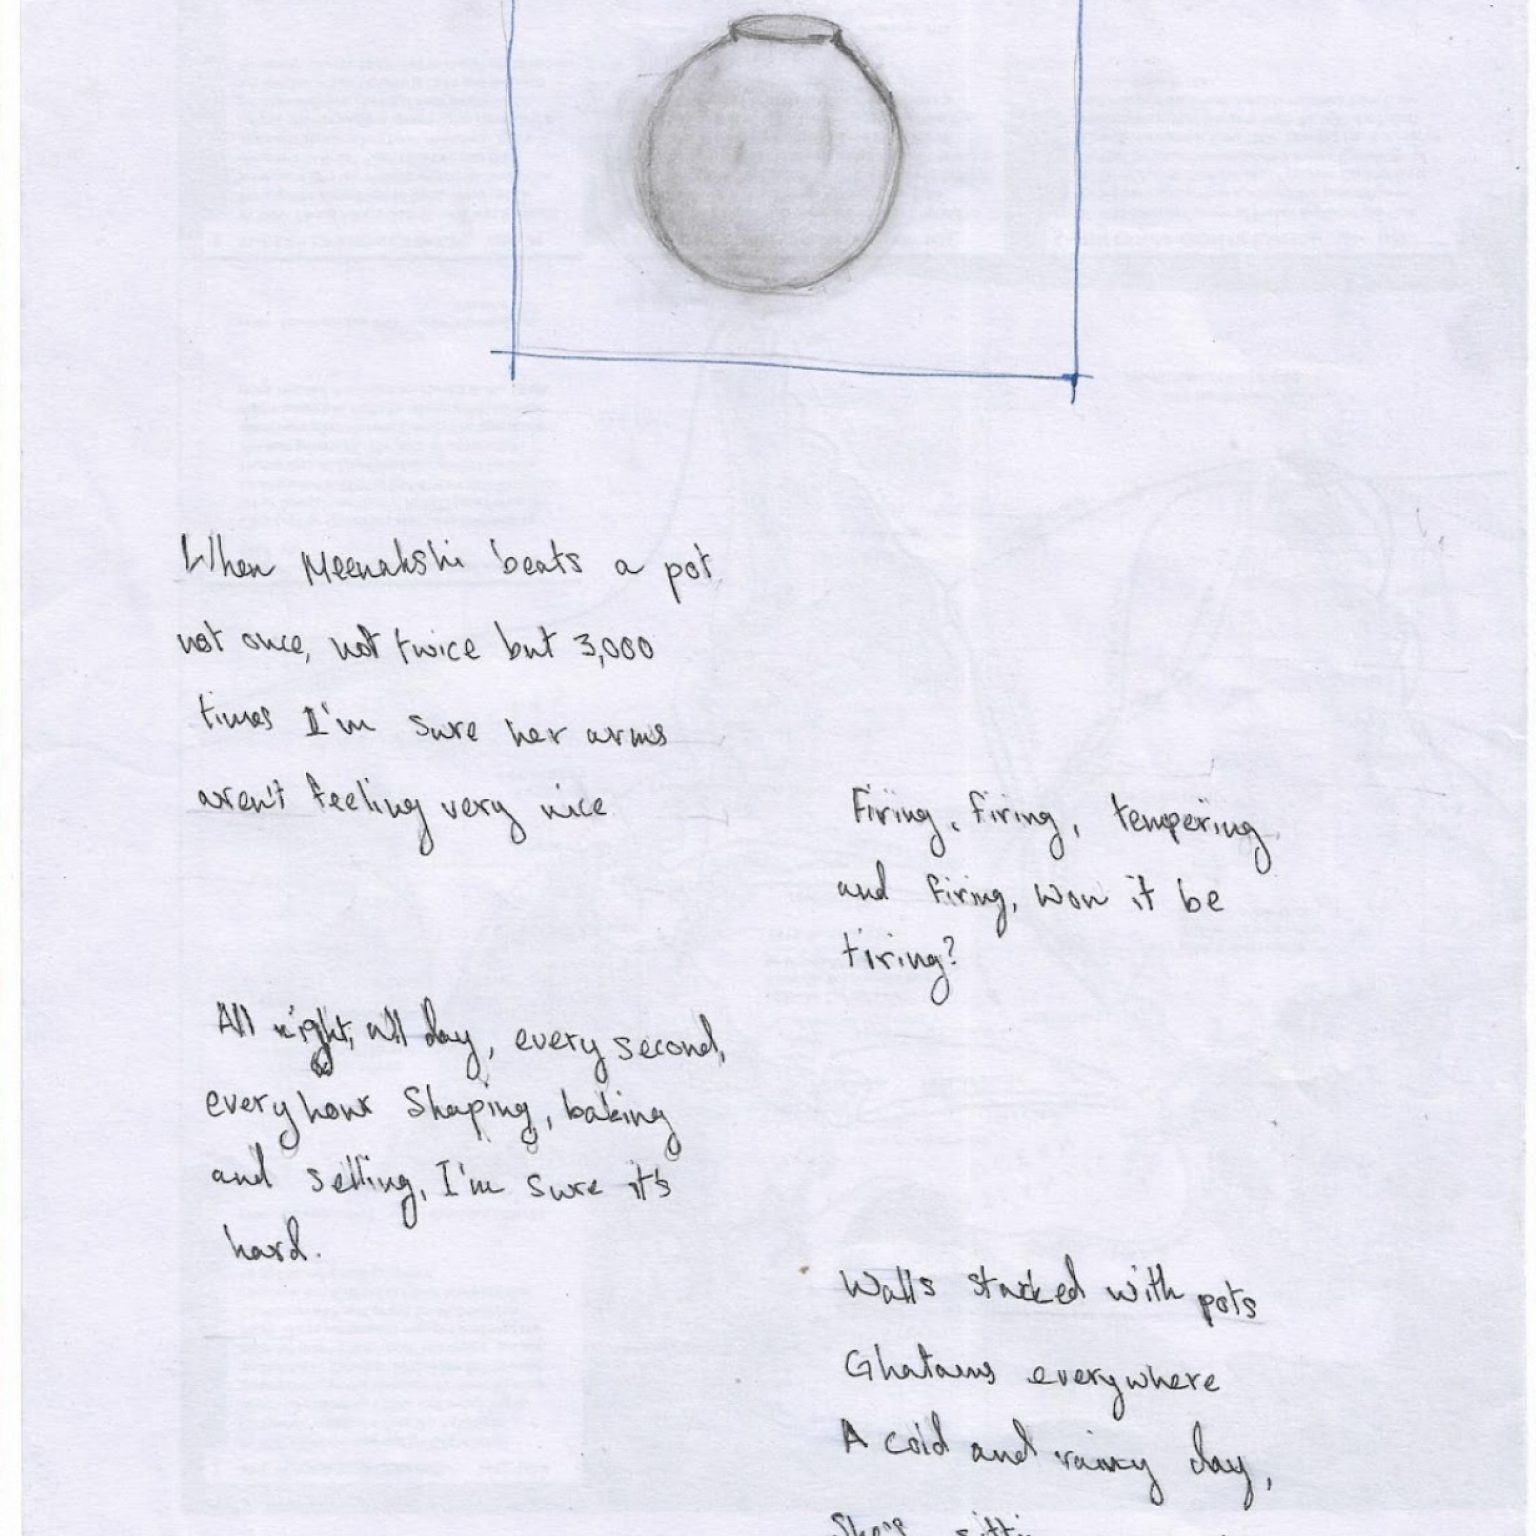 When Meenakshi beats a pot
not once, not twice but 3,000
times I'm sure her arms
aren't feeling very nice
Firing, firing, tempering
and firing, won it be
tiring?
All night, all day, every second,
every hour Shaping, baking
and selling, I'm sure it's
hard.
Walls stacked with pots
Ghatams everywhere
A cold and rainy day,
She's sitting